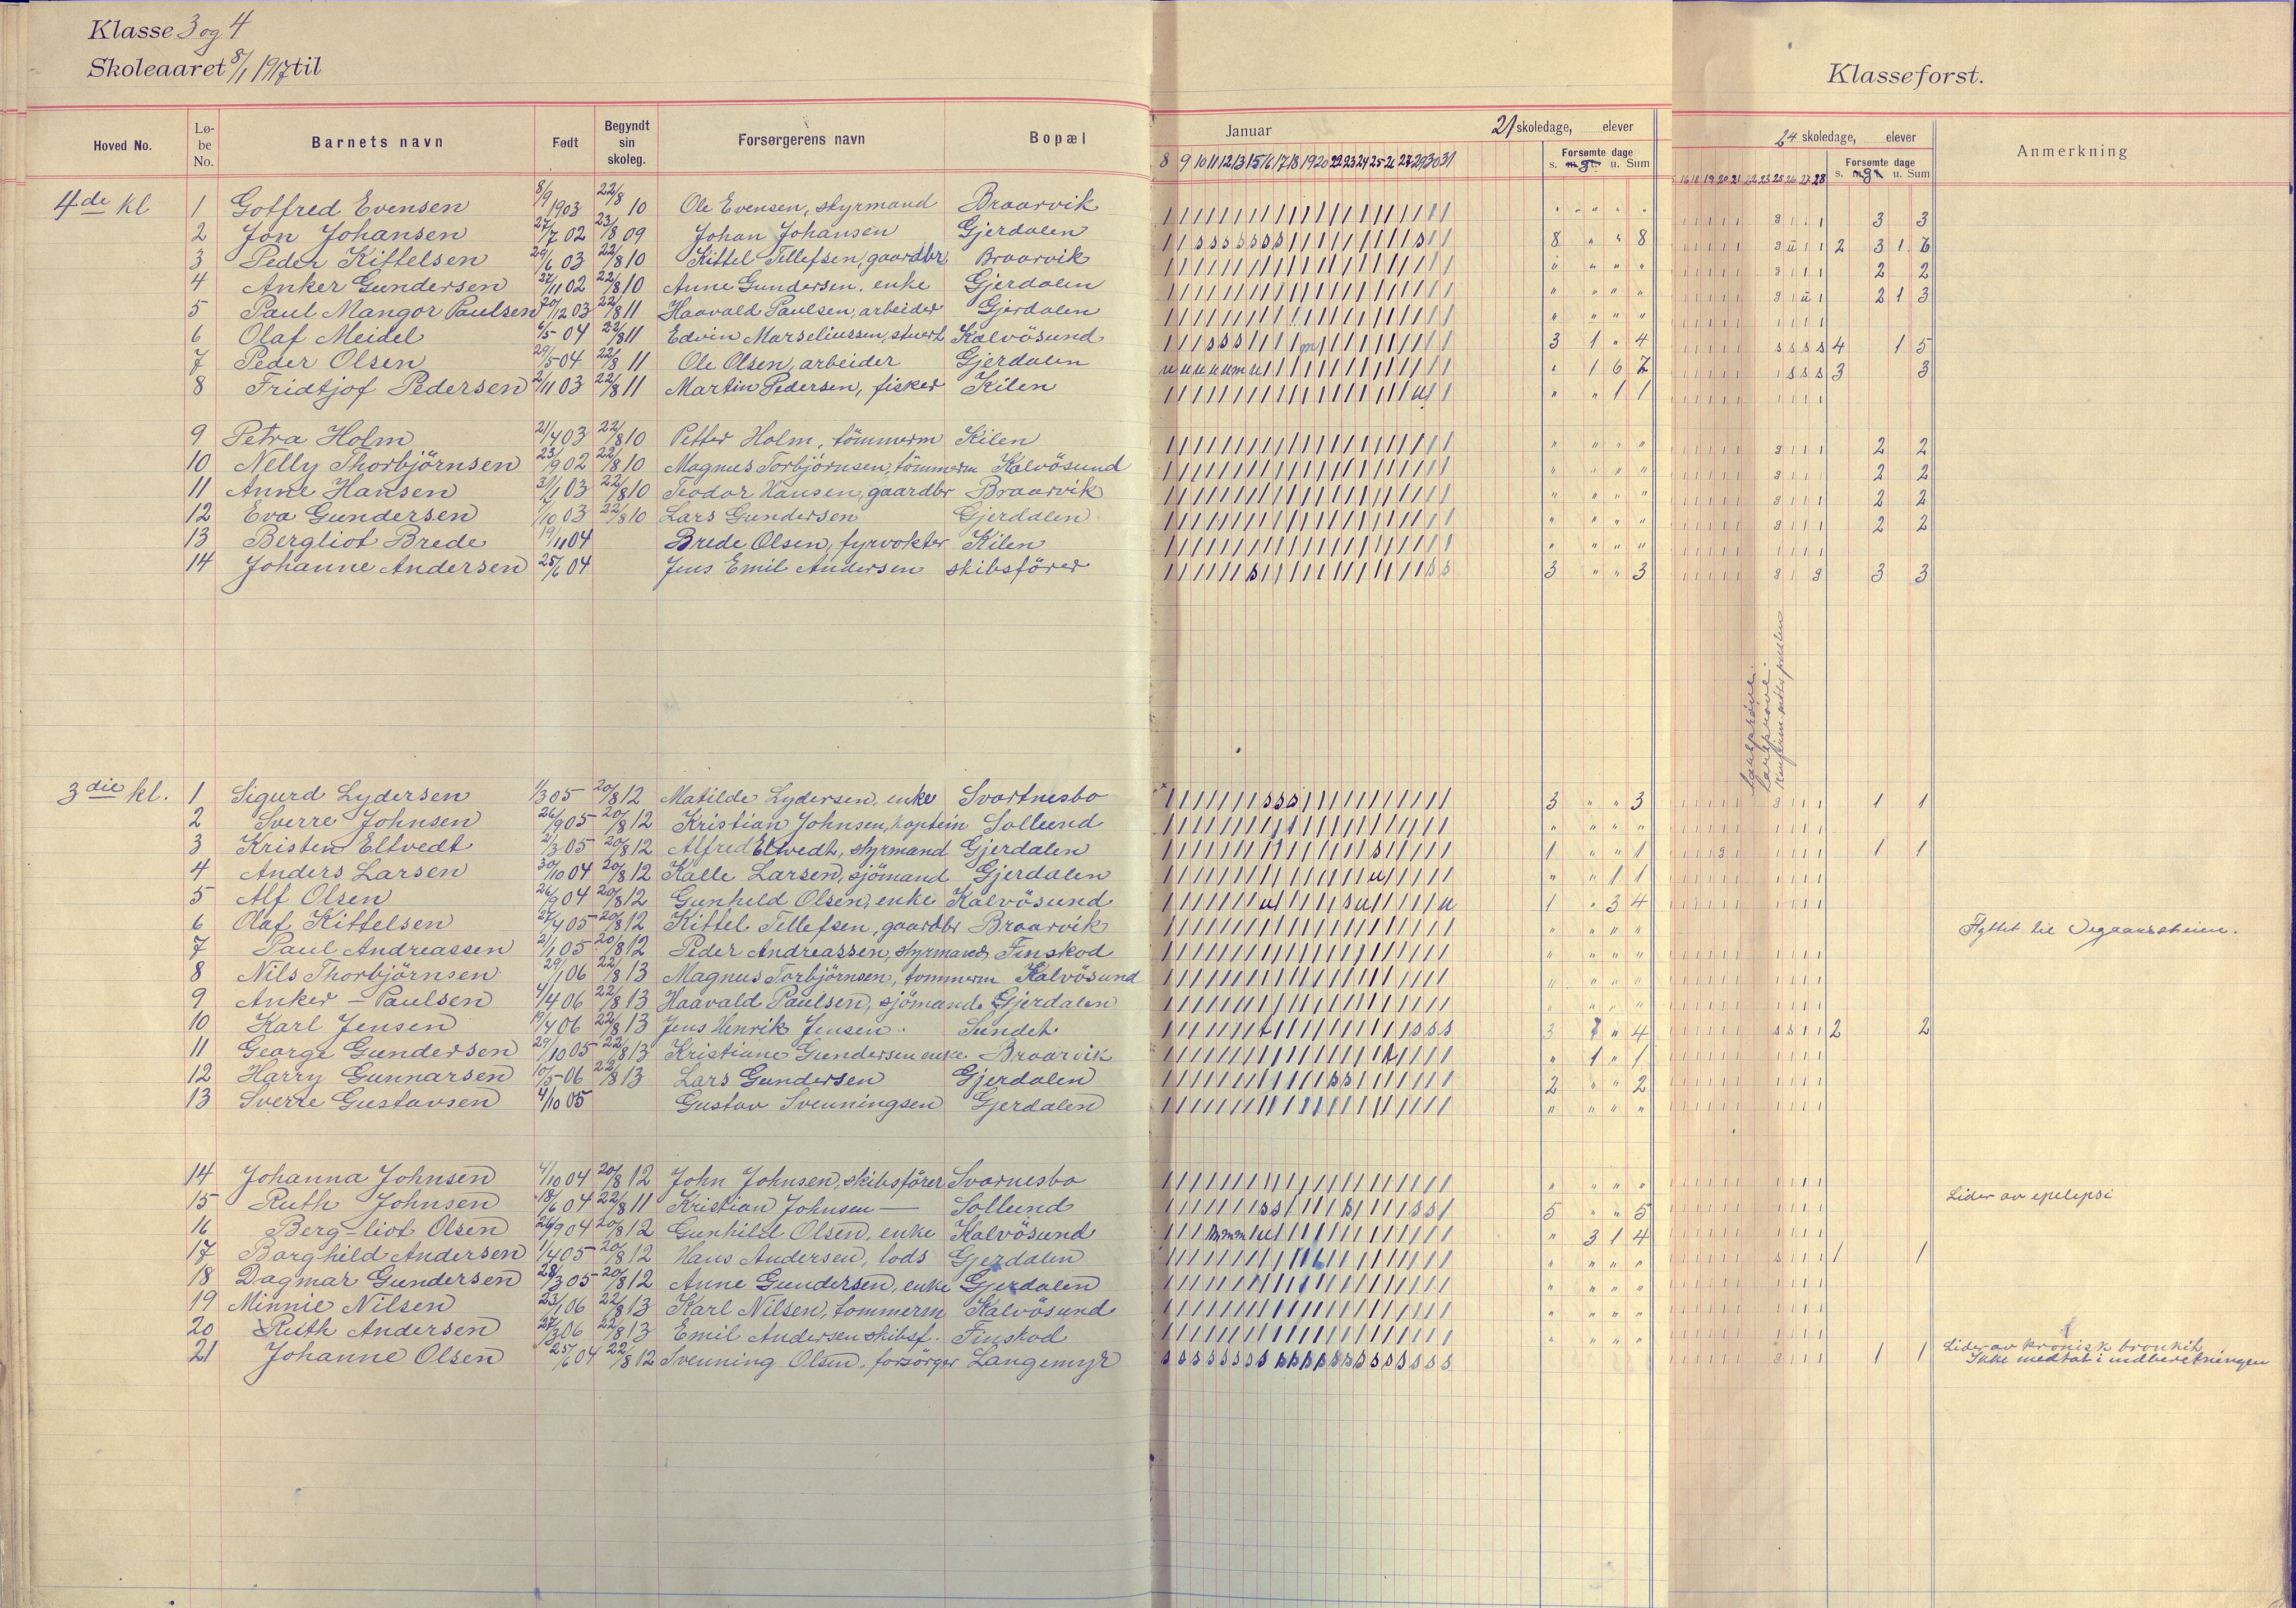 Klasse 3 og 4
Skoleaaret 8/1 1917 til
Klasseforst.
Hoved No. Lø-be No. Barnets navn Født Begyndt sin skoleg. Forsørgerens navn Bopæl Januar 21 skoledage, elever 24 skoledage, elever Anmerkning
8 9 10 11 12 13 15 16 17 18 19 20 22 23 24 25 26 27 29 30 31 Forsømte dage s. u. Sum 16 18 19 20 21 22 23 25 26 27 28 Forsømte dage s. u. Sum
4de kl 1 Gotfred Evensen 8/9 1903 22/8 10 Ole Evensen, styrmand Braarvik 3 3
2 Jon Johansen 27/7 02 23/8 09 Johan Johansen Gjerdalen 8 " " 8 2 3 1 6
3 Peder Kittelsen 29/6 03 22/8 10 Kittel Tellefsen, gaardbr. Braarvik " " " " 2 2
4 Anker Gundersen 27/11 02 22/8 10 Anne Gundersen, enke Gjerdalen " " " " 2 1 3
5 Paul Mangor Paulsen 20/12 03 22/8 11 Haavald Paulsen, arbeider Gjerdalen " " " "
6 Olaf Meidel 6/5 04 22/8 11 Edvin Marseliussen, stuert Kalvösund 3 1 " 4 4 1 5
7 Peder Olsen 29/5 04 22/8 11 Ole Olsen, arbeider Gjerdalen " 1 6 7 3 3
8 Fridtjof Pedersen 2/11 03 22/8 11 Martin Pedersen, fisker Kilen " " 1 1
9 Petra Holm 21/4 03 22/8 10 Petter Holm, tömmerm Kilen " " " " 2 2
10 Nelly Thorbjörnsen 23/9 02 22/8 10 Magnus Torbjörnsen, tömmerm Kalvösund " " " " 2 2
11 Anne Hansen 31/1 03 22/8 10 Teodor Hansen, gaardbr Braarvik " " " " 2 2
12 Eva Gundersen 7/10 03 22/8 10 Lars Gundersen Gjerdalen " " " " 2 2
13 Bergliot Brede 19/1 04 Brede Olsen, fyrvokter Kilen " " " "
14 Johanne Andersen 25/6 04 Jens Emil Andersen skibsförer 3 " " 3 3 3
3die kl. 1 Sigurd Lydersen 1/3 05 20/8 12 Matilde Lydersen, enke Svartnesbo 3 " " 3 1 1
2 Sverre Johnsen 26/9 05 20/8 12 Kristian Johnsen, kaptein Sollund " " " "
3 Kristen Eltvedt 2/3 05 20/8 12 Alfred Eltvedt, styrmand Gjerdalen 1 " " 1 1 1
4 Anders Larsen 30/10 04 20/8 12 Kalle Larsen, sjömand Gjerdalen " " 1 1
5 Alf Olsen 26/9 04 20/8 12 Gunhild Olsen, enke Kalvösund 1 " 3 4
6 Olaf Kittelsen 27/4 05 20/8 12 Kittel Tellefsen, gaardbr Braarvik " " " " Flyttet til
7 Paul Andreassen 2/1 05 20/8 12 Peder Andreassen, styrmand Finskod " " " "
8 Nils Thorbjörnsen 29/1 06 22/8 13 Magnus Torbjörnsen, tommerm Kalvösund " " " "
9 Anker - Paulsen 4/4 06 22/8 13 Haavald Paulsen, sjömand Gjerdalen " " " "
10 Karl Jensen 19/4 06 22/8 13 Jens Henrik Jensen Sundet 3 1 " 4 2 2
11 George Gundersen 29/10 05 22/8 13 Kristiane Gundersen enke. Braarvik " 1 " 1
12 Harry Gunnarsen 10/5 06 22/8 13 Lars Gundersen Gjerdalen 2 " " 2
13 Sverre Gustavsen 4/10 05 Gustav Svenningsen Gjerdalen " " " "
14 Johanna Johnsen 4/10 04 20/8 12 John Johnsen, skibsförer Svarnesbo " " " "
15 Ruth Johnsen 18/6 04 22/8 11 Kristian Johnsen — Sollund 5 " " 5 Lider av epelepsi
16 Berg-liot Olsen 26/9 04 20/8 12 Gunhild Olsen, enke Kalvösund " 3 1 4
17 Borghild Andersen 1/4 05 20/8 12 Hans Andersen, lods Gjerdalen " " " " 1 1
18 Dagmar Gundersen 28/3 05 20/8 12 Anne Gundersen, enke Gjerdalen " " " "
19 Minnie Nilsen 23/1 06 22/8 13 Karl Nilsen, tommerm Kalvösund " " " "
20 Ruth Andersen 27/3 06 22/8 13 Emil Andersen skibsf. Finskod " " " "
21 Johanne Olsen 25/6 04 22/8 12 Svenning Olsen, forsörger Langemyr 1 1 Lider av kronisk bronkit
Ikke medtat i indberetningen